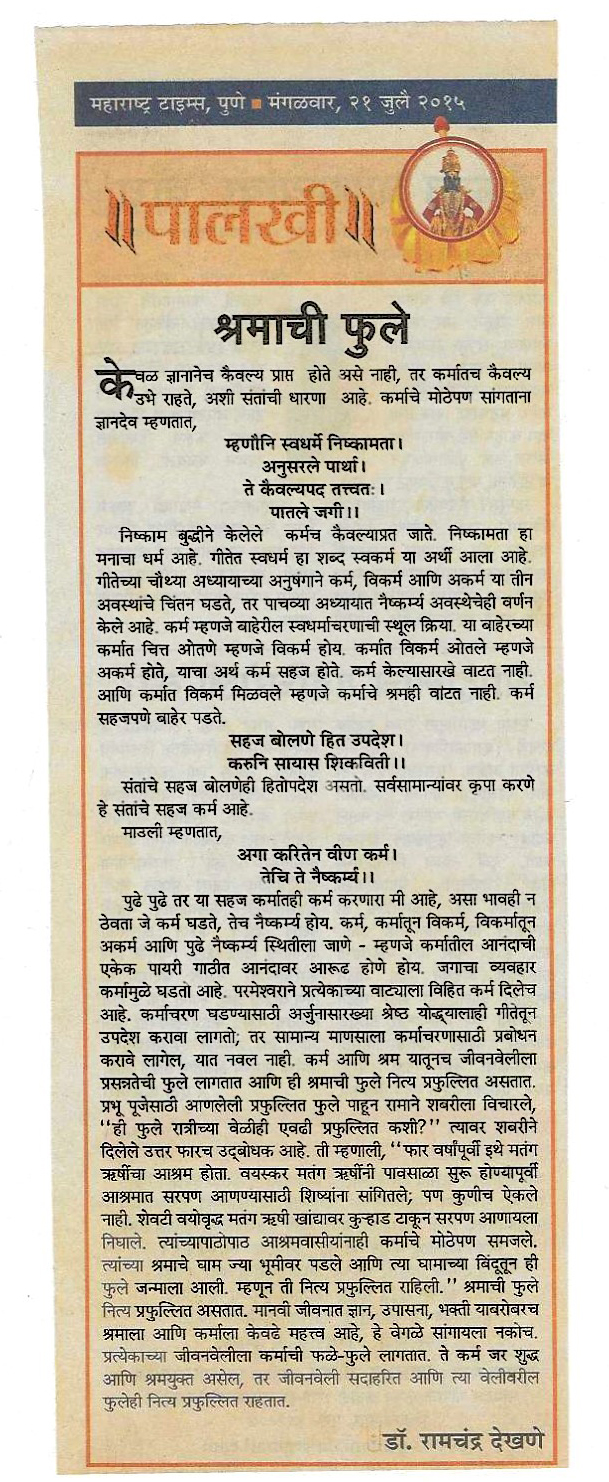 महाराष्ट्र टाइम्स, पुणे ■ मंगळवार, २१ जुलै २०१५
॥पालखी॥
श्रमाची फुले
केवळ ज्ञानानेच कैवल्य प्राप्त होते असे नाही, तर कर्मातच कैवल्य
उभे राहते, अशी संतांची धारणा आहे. कर्माचे मोठेपण सांगताना
ज्ञानदेव म्हणतात,
म्हणौनि स्वधर्मे निष्कामता।
अनुसरले पार्था।
ते कैवल्यपद तत्त्वतः।
पातले जगी।।
निष्काम बुद्धीने केलेले कर्मच कैवल्याप्रत जाते. निष्कामता हा
मनाचा धर्म आहे. गीतेत स्वधर्म हा शब्द स्वकर्म या अर्थी आला आहे.
गीतेच्या चौथ्या अध्यायाच्या अनुषंगाने कर्म, विकर्म आणि अकर्म या तीन
अवस्थांचे चिंतन घडते, तर पाचव्या अध्यायात नैष्कर्म्य अवस्थेचेही वर्णन
केले आहे. कर्म म्हणजे बाहेरील स्वधर्माचरणाची स्थूल क्रिया. या बाहेरच्या
कर्मात चित्त ओतणे म्हणजे विकर्म होय. कर्मात विकर्म ओतले म्हणजे
अकर्म होते, याचा अर्थ कर्म सहज होते. कर्म केल्यासारखे वाटत नाही.
आणि कर्मात विकर्म मिळवले म्हणजे कर्माचे श्रमही वाटत नाही. कर्म
सहजपणे बाहेर पडते.
सहज बोलणे हित उपदेश।
करुनि सायास शिकविती।।
संतांचे सहज बोलणेही हितोपदेश असतो. सर्वसामान्यांवर कृपा करणे
हे संतांचे सहज कर्म आहे.
माउली म्हणतात,
अगा करितेन वीण कर्म।
तेचि ते नैष्कर्म्य।।
पुढे पुढे तर या सहज कर्मातही कर्म करणारा मी आहे, असा भावही न
ठेवता जे कर्म घडते, तेच नैष्कर्म्य होय. कर्म, कर्मातून विकर्म, विकर्मातून
अकर्म आणि पुढे नैष्कर्म्य स्थितीला जाणे - म्हणजे कर्मातील आनंदाची
एकेक पायरी गाठीत आनंदावर आरूढ होणे होय. जगाचा व्यवहार
कर्मामुळे घडता आहे. परमेश्वराने प्रत्येकाच्या वाट्याला विहित कर्म दिलेच
आहे. कर्माचरण घडण्यासाठी अर्जुनासारख्या श्रेष्ठ योद्ध्यालाही गीतेतून
उपदेश करावा लागतो; तर सामान्य माणसाला कर्माचरणासाठी प्रबोधन
करावे लागेल, यात नवल नाही. कर्म आणि श्रम यातूनच जीवनवेलीला
प्रसन्नतेची फुले लागतात आणि ही श्रमाची फुले नित्य प्रफुल्लित असतात.
प्रभू पूजेसाठी आणलेली प्रफुल्लित फुले पाहून रामाने शबरीला विचारले,
‘‘ही फुले रात्रीच्या वेळीही एवढी प्रफुल्लित कशी?’’ त्यावर शबरीने
दिलेले उत्तर फारच उद्बोधक आहे. ती म्हणाली, ‘‘फार वर्षांपूर्वी इथे मतंग
ऋषींचा आश्रम होता. वयस्कर मतंग ऋषींनी पावसाळा सुरू होण्यापूर्वी
आश्रमात सरपण आणण्यासाठी शिष्यांना सांगितले; पण कुणीच ऐकले
नाही. शेवटी वयोवृद्ध मतंग ऋषी खांद्यावर कुऱ्हाड टाकून सरपण आणायला
निघाले. त्यांच्यापाठोपाठ आश्रमवासीयांनाही कर्माचे मोठेपण समजले.
त्यांच्या श्रमाचे घाम ज्या भूमीवर पडले आणि त्या घामाच्या बिंदूतून ही
फुले जन्माला आली. म्हणून ती नित्य प्रफुल्लित राहिली.’’ श्रमाची फुले
नित्य प्रफुल्लित असतात. मानवी जीवनात ज्ञान, उपासना, भक्ती याबरोबरच
श्रमाला आणि कर्माला केवढे महत्त्व आहे, हे वेगळे सांगायला नकोच.
प्रत्येकाच्या जीवनवेलीला कर्माची फळे-फुले लागतात. ते कर्म जर शुद्ध
आणि श्रमयुक्त असेल, तर जीवनवेली सदाहरित आणि त्या वेलीवरील
फुलेही नित्य प्रफुल्लित राहतात.
डॉ. रामचंद्र देखणे